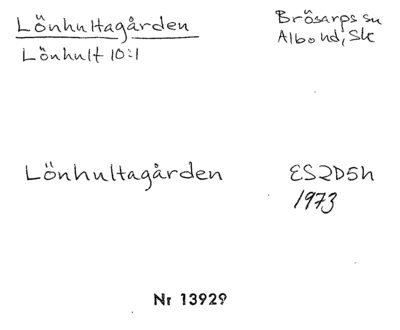 Lönhultagården
Lönhult 10:1
Brösarps sn
Albo hd, Sk
Lönhultagården
ES2D5h
1973
Nr 13929